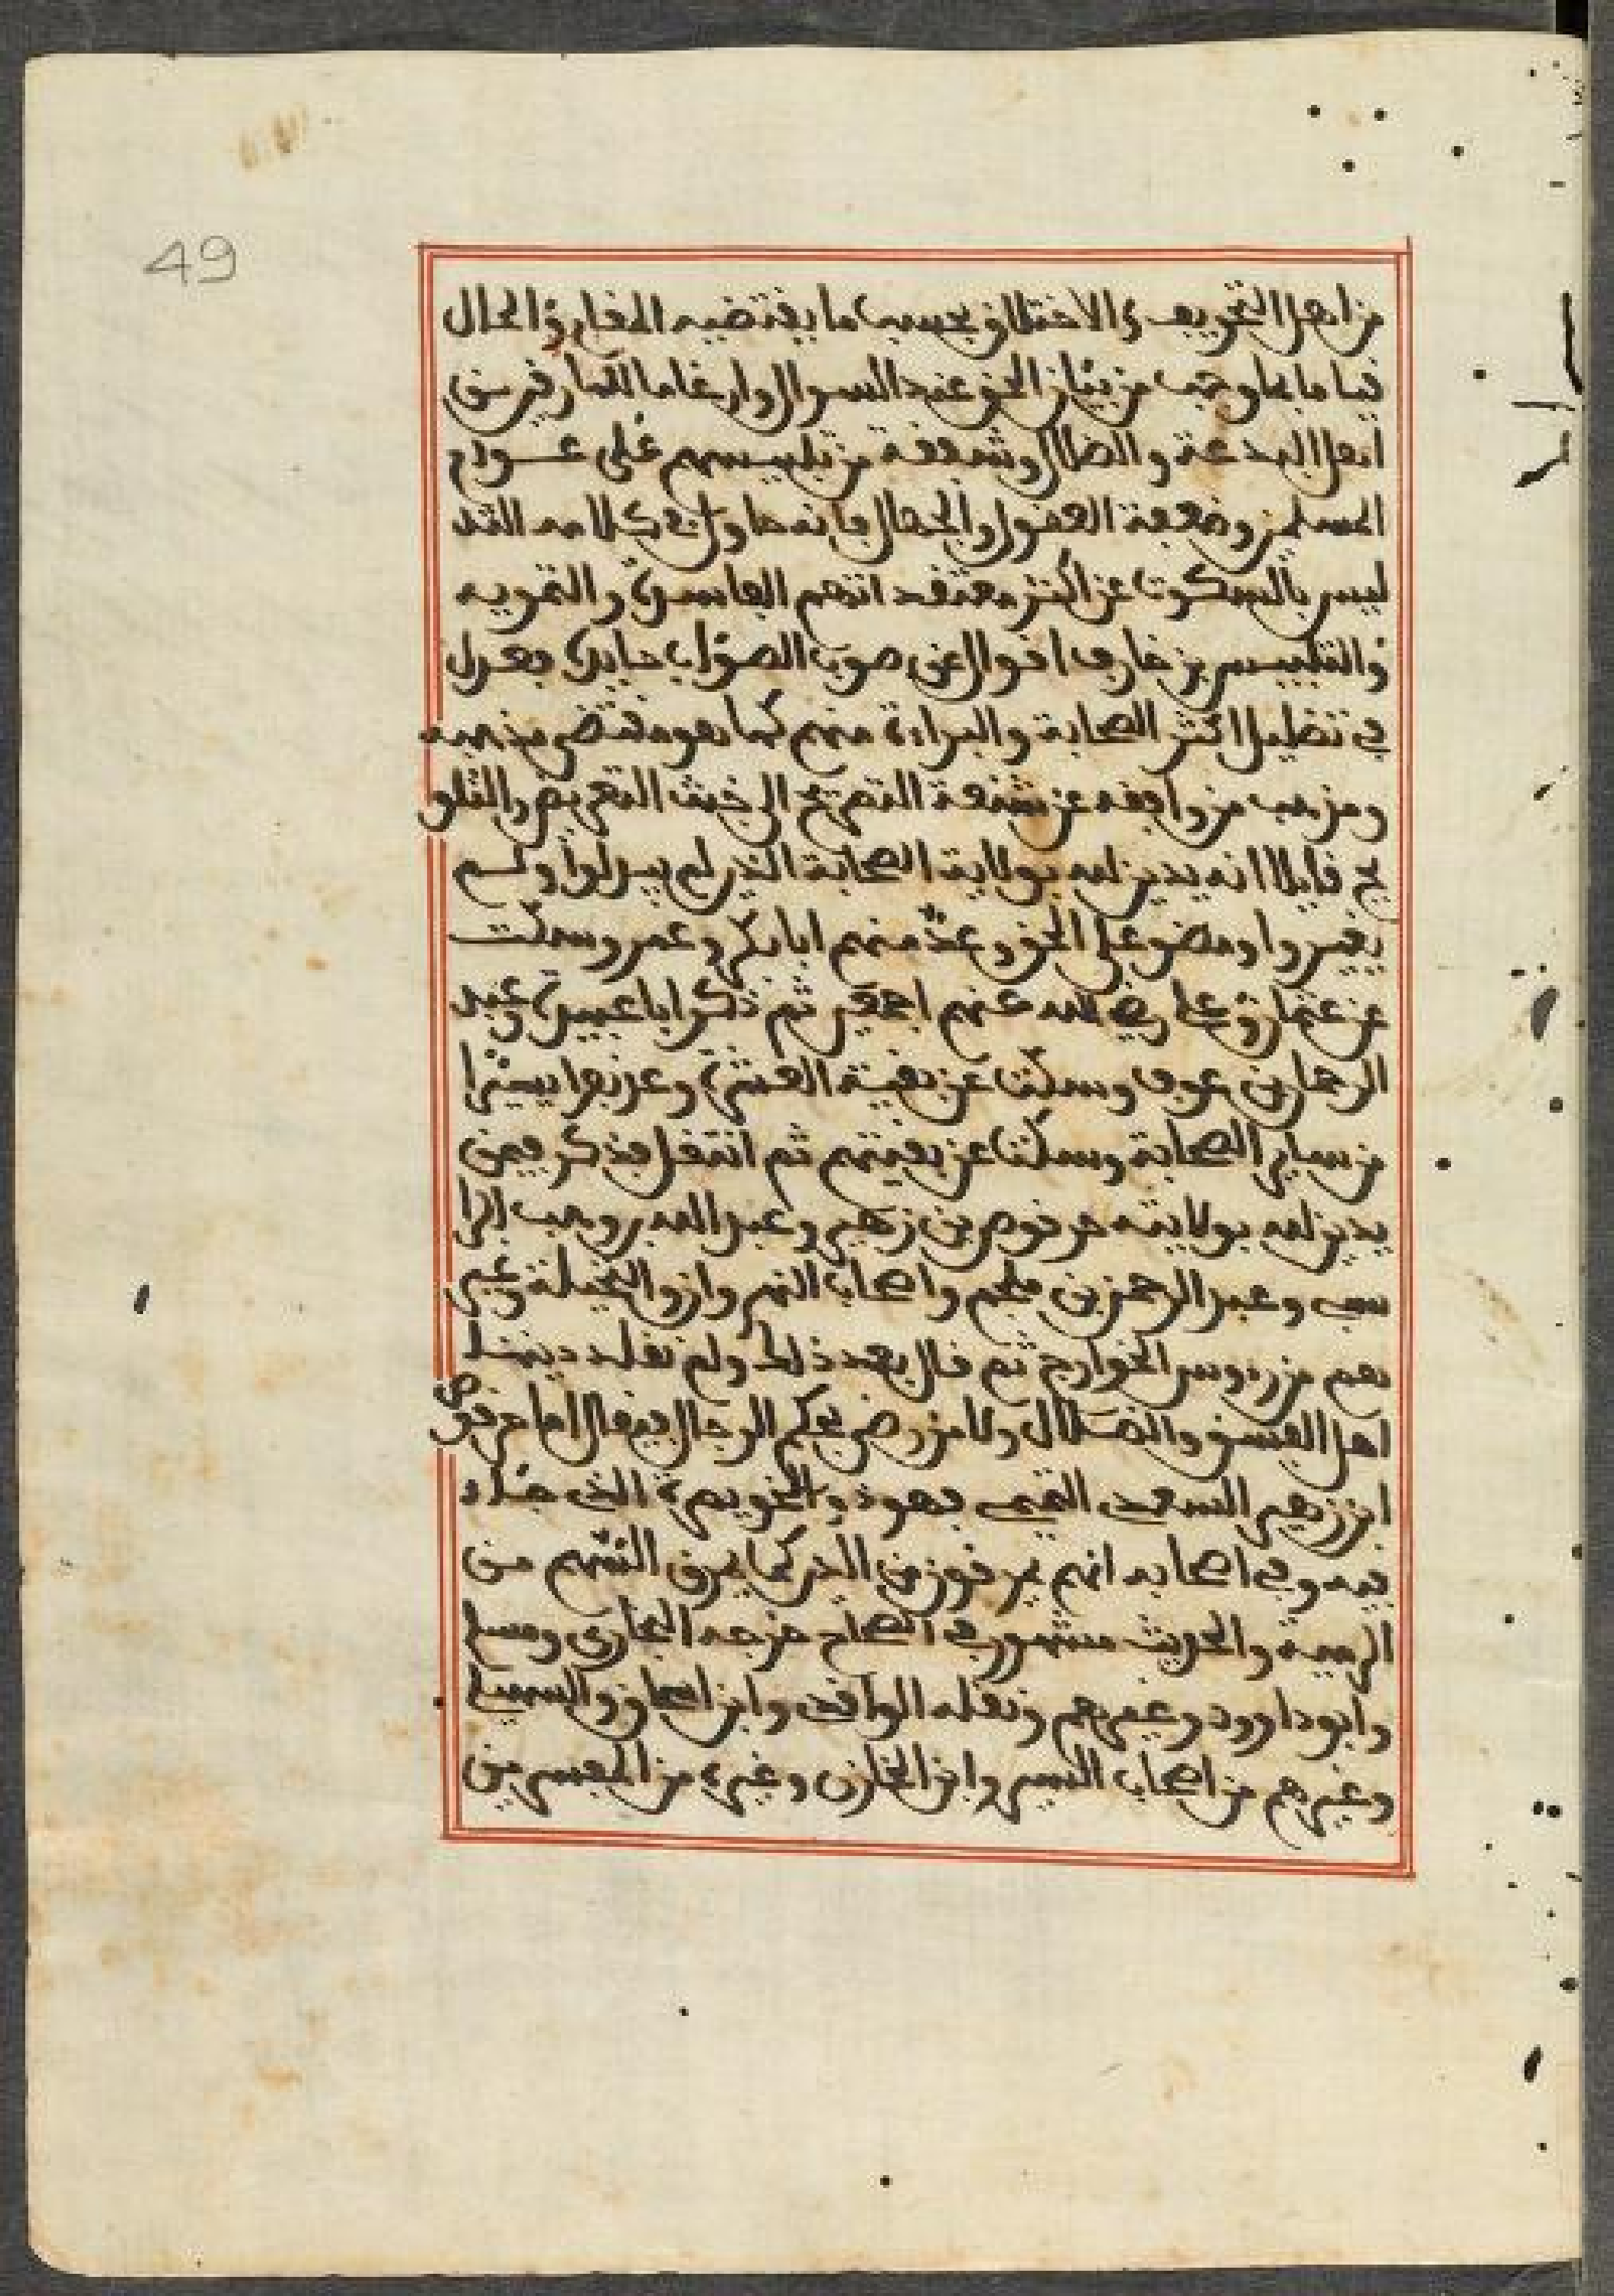 49
من اهل التحريف والاختلاق بحسب ما يقتضيه المقام والحال
قياما بما وجب من بيان الحق عند السوال وارغاما للمارقين من
اهل البدعة والضلال وشفقة من تلبيسهم على عوام
المسلمين وضعفة العقول والجهال فانه حاول في كلامه الذي
ليس بالسكوت عن اكثر معتقداتهم الفاسدة والتمويه
والتلبيس بزخارف اقوال عن صوب الصواب حايدة فعدل
في تضليل اكثر الصحابة والبراءة منهم كما هو مقتضى مذهبه
ومذهب من وافقه عن شنعة التصريح الى خبث التعريض والتلو
يح قايلا انه يدين لله بولاية الصحابة الذين لم يبدلوا ولم
يغيروا ومضوا على الحق وعد منهم ابا بكر وعمر وسكت
عن عثمان وعلي رضي الله عنهم اجمعين ثم ذكر ابا عبيدة وعبد
الرحمان بن عوف وسكت عن بقية العشرة وعد نفرا يسيرا
من ساير الصحابة وسكت عن بقيتهم ثم انتقل فذكر فيمن
يدين لله بولايته حرقوص بن زهير وعبد الله بن وهب الرا
سبي وعبد الرحمن بن ملجم واصحاب النهروان والنخيلة وغير
هم من رءوس الخوارج ثم قال بعد ذلك ولم نقلد ديننا
اهل الفسق والضلال ولا من رضي بحكم الرجال فيقال اما حرقوص
ابن زهير السعدي التميمي فهو ذو الخويصرة الذي جاء
فيه وفي اصحابه انهم يمرقون من الدين كما يمرق السهم من
الرمية والحديث مشهور في الصحاح خرجه البخاري ومسلم
وابو داوود وغيرهم ونقله الواقدي وابن اسحاق والسهيلي
وغيرهم من اصحاب السير وابن الخازن وغيره من المفسرين